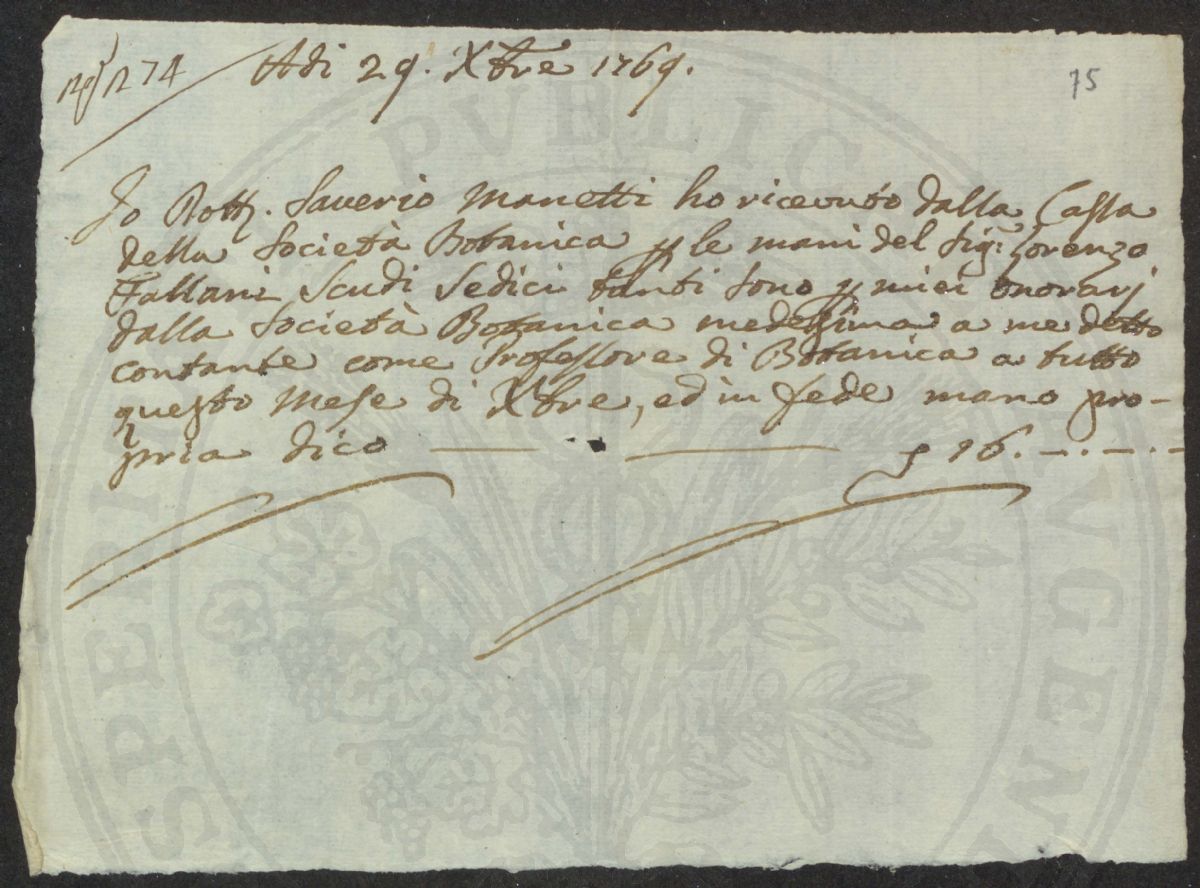 274 Adi 29. Xbre 1769.
75
Io Dott. Saverio Manetti ho ricevuto dalla Cassa
della Società Botanica p le mani del Sig: Lorenzo
Fallani Scudi Sedici tanti sono p miei onorarj
dalla Società Botanica medesima a me detto
contante come Professore di Botanica a tutto
questo Mese di Xbre, ed in fede mano pro-
pria dico — — 16. —.—.—
PVBLIC AVGEN
SPERIS